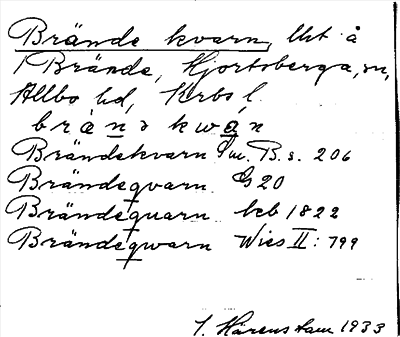 Brände kvarn, lht å
1 Brände, Hjortsberga, sn,
Allbo hd, Krbs l.
brand kwan
Brändekvarn Sm. B. s. 206
Brändeqvarn G 20
Brändequarn kcb 1822
Brändeqwarn Wies II: 799
I. Härenstam 1933